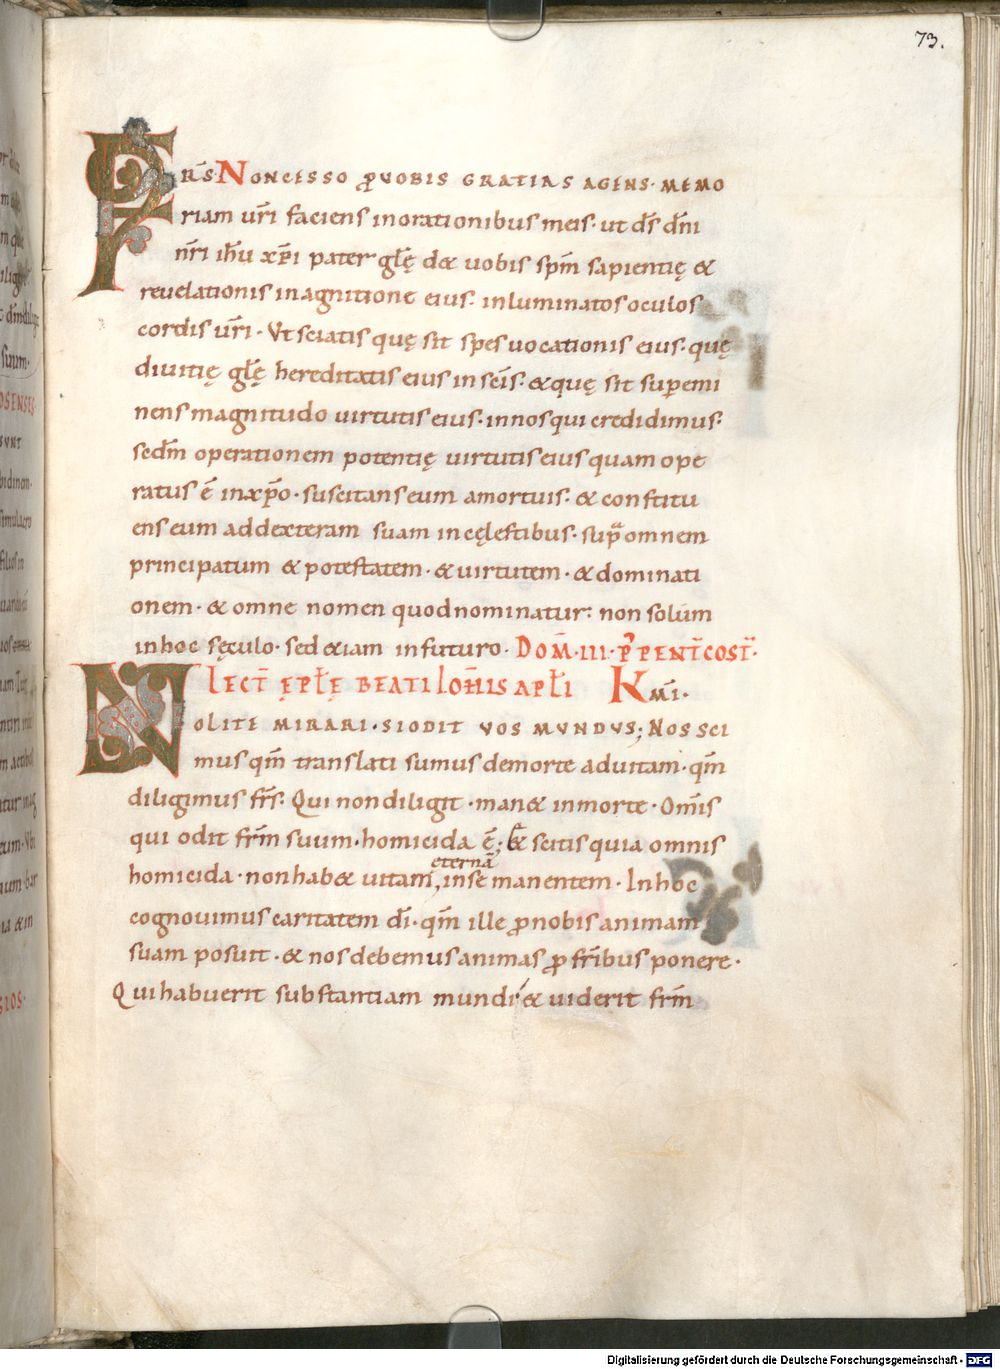 73.
FRS̄ NON CESSO ꝓ VOBIS GRATIAS AGENS· MEMO
riam ur̄i faciens inorationibus meis· ut d̄s dn̄i
nr̄i ih̄u xp̄i pater gl̄ę d& uobis sp̄m sapientię &
reuelationis inagnitione eius· inluminatos oculos
cordis ur̄i· Ut sciatis quę sit spes uocationis eius· quę
diuitię gl̄ę hereditatis eius in sc̄is· &quę sit sup̄emi
nens magnitudo uirtutis eius· innos qui credidimus·
sed̄m operationem potentię uirtutis eius quam ope
ratus ē inxp̄o· suscitans eum amortuis· & constitu
ens eum addexteram suam incęlestibus· sup̄ omnem
principatum & potestatem· & uirtutem· & dominati
onem· & omne nomen quod nominatur· non solum
inhoc sęculo· sed &iam infuturo· DOM̄· III· P̄ PENT̄COST̄·
LECT̄ ĘPL̄Ę BEATI IOH̄IS APL̄I K̄mi·
NOLITE MIRARI· SI ODIT VOS MVNDVS; NOS SCI
mus qm̄ translati sumus demorte aduitam· qm̄
diligimus fr̄s· Qui non diligit· man& inmorte· Om̄is
qui odit fr̄m suum· homicida ē; & scitis quia omnis
eternā
homicida· non hab& uitam, inse manentem· Inhoc
cognouimus caritatem dī· qm̄ ille ꝓ nobis animam
suam posuit· & nos debemus animas ꝓ fr̄ibus ponere·
Qui habuerit substantiam mundi & uiderit fr̄m
Digitalisierung gefördert durch die Deutsche Forschungsgemeinschaft - DFG